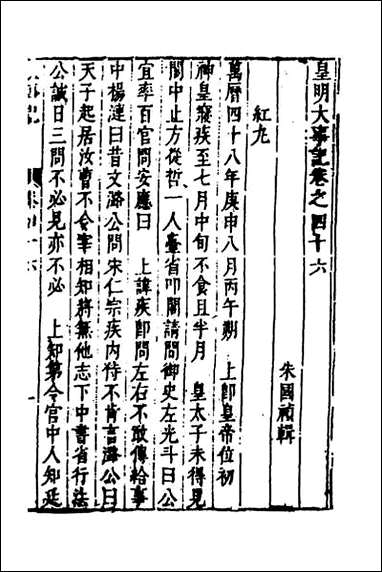 皇明大事記卷之四十六
朱國禎輯
紅丸
萬曆四十八年庚申八月丙午朔　上卽皇帝位初
神皇寢疾至七月中旬不食且半月　皇太子未得見
閣中止方從哲一人臺省叩閽請問御史左光斗曰公
宜率百官問安應曰　上諱疾卽問左右不敢傳給事
中楊漣曰昔文潞公問宋仁宗疾内侍不肯言潞公曰
天子起居汝曹不令宰相知將無他志下中書省行法
公誠日三問不必見亦不必　上知第令宮中人知廷